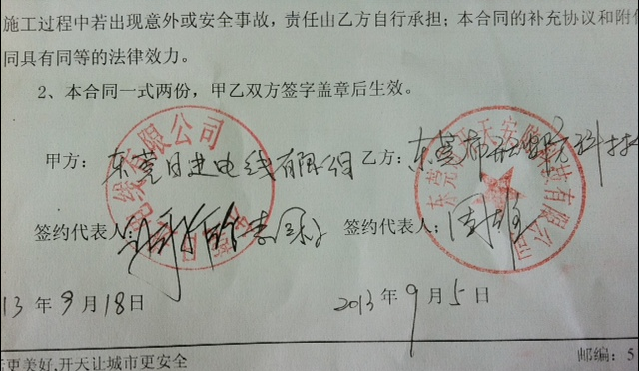 施工过程中若出现意外或安全事故，责任由乙方自行承担；本合同的补充协议和附
同具有同等的法律效力。
2、本合同一式两份，甲乙双方签字盖章后生效。
甲方：东莞日进电线有限公司
乙方：东莞市 科技
签约代表人：
签约代表人：
13年9月18日
2013年9月5日
更美好,开天让城市更安全
邮编：5